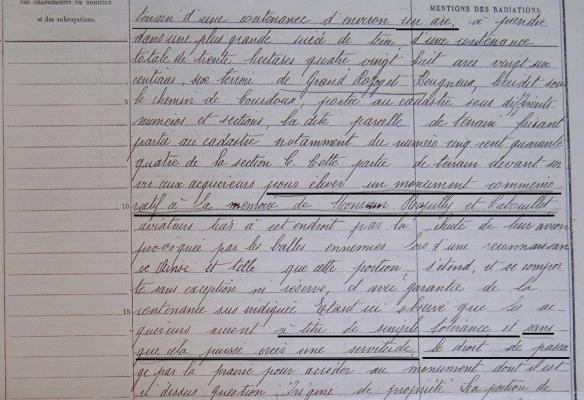 DES CHANGEMENTS DE DOMICILE
et des subrogations.
MENTIONS DES RADIATIONS.
terrain d'une contenance d'environ un are, à prendre
dans une plus grande pièce de terre, d'une contenance
totale de trente hectares quatre vingt huit ares vingt six
centiares sur terroir de Grand Rozoy et Beugneux, lieudit sous
5 le chemin de Courdoux, portée au cadastre sous différents
numéros et sections, la dite parcelle de terrain faisant
partie au cadastre notamment du numéro cinq cent quarante
quatre de la section C. Cette partie de terrain devant ser
vir aux acquereurs pour élever un monument commémo
10 ratif à la memoire de Messieurs et
aviateurs tués à cet endroit par la chute de leur avion
provoquée par les balles ennemies lors d'une reconnaissan
ce Ainsi et telle que cette portion, s'étend, et se compor
te sans exception ni réserve, et avec garantie de la
15 contenance sus indiquée Etant ici observé que les ac
quereurs auront à titre de simple tolérance et sans
que cela puisse créer une servitude le droit de passa
ge par la prairie pour accéder au monument dont il est
ci dessus question. Origine de propriété La portion de